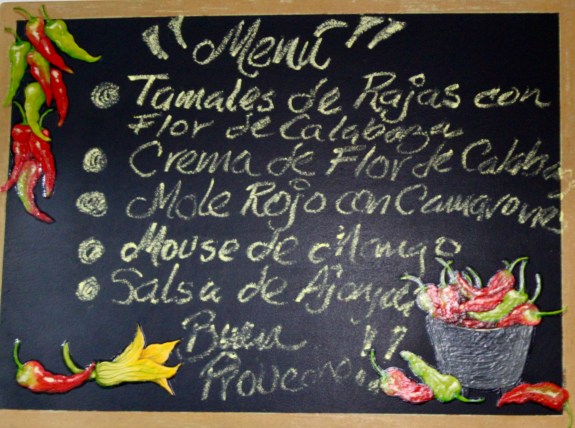 "Menú"
Tamales de Rajas con
Flor de Calabaza
Crema de Flor de Calabaza
Mole Rojo con Camarones
Mouse de Mango
Salsa de
Buen
!!